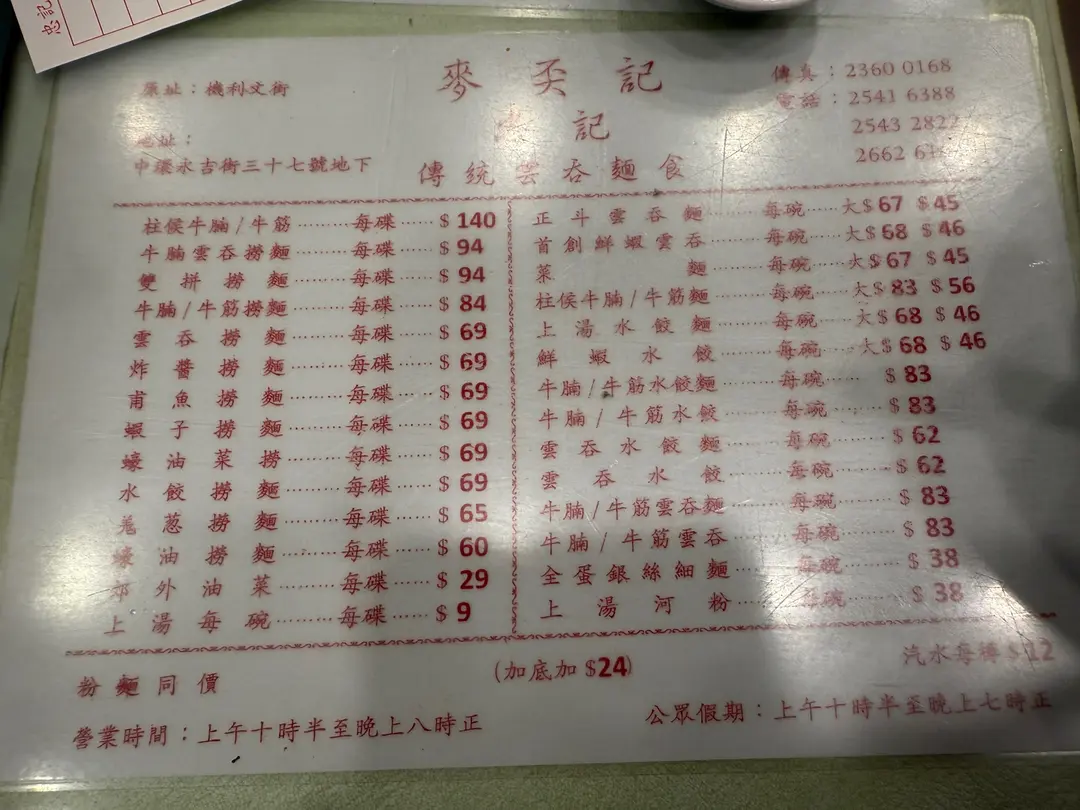 忠記
原址：機利文街
地址：
中環永吉街三十七號地下
麥奀記
記
傳統雲吞麵食
傳真：2360 0168
電話：2541 6388
2543 2822
2662
柱侯牛腩/牛筋………每碟……$ 140
牛腩雲吞撈麵………每碟……$ 94
雙拼撈麵………每碟……$ 94
牛腩/牛筋撈麵………每碟……$ 84
雲吞撈麵………每碟……$ 69
炸醬撈麵………每碟……$ 69
甫魚撈麵………每碟……$ 69
蝦子撈麵………每碟……$ 69
蠔油菜撈………每碟……$ 69
水餃撈麵………每碟……$ 69
羗葱撈麵………每碟……$ 65
蠔油撈麵………每碟……$ 60
郊外油菜………每碟……$ 29
上湯每碗………每碟……$ 9
正斗雲吞麵………每碗……大$ 67 $ 45
首創鮮蝦雲吞………每碗……大$ 68 $ 46
菜麵………每碗……大$ 67 $ 45
柱侯牛腩/牛筋麵………每碗……大$ 83 $ 56
上湯水餃麵………每碗……大$ 68 $ 46
鮮蝦水餃………每碗……大$ 68 $ 46
牛腩/牛筋水餃麵………每碗……$ 83
牛腩/牛筋水餃………每碗……$ 83
雲吞水餃麵………每碗……$ 62
雲吞水餃………每碗……$ 62
牛腩/牛筋雲吞麵………每碗……$ 83
牛腩/牛筋雲吞………每碗……$ 83
全蛋銀絲細麵………每碗……$ 38
上湯河粉………每碗……$ 38
粉麵同價
(加底加 $24)
汽水每樽 $12
營業時間：上午十時半至晚上八時正
公眾假期：上午十時半至晚上七時正